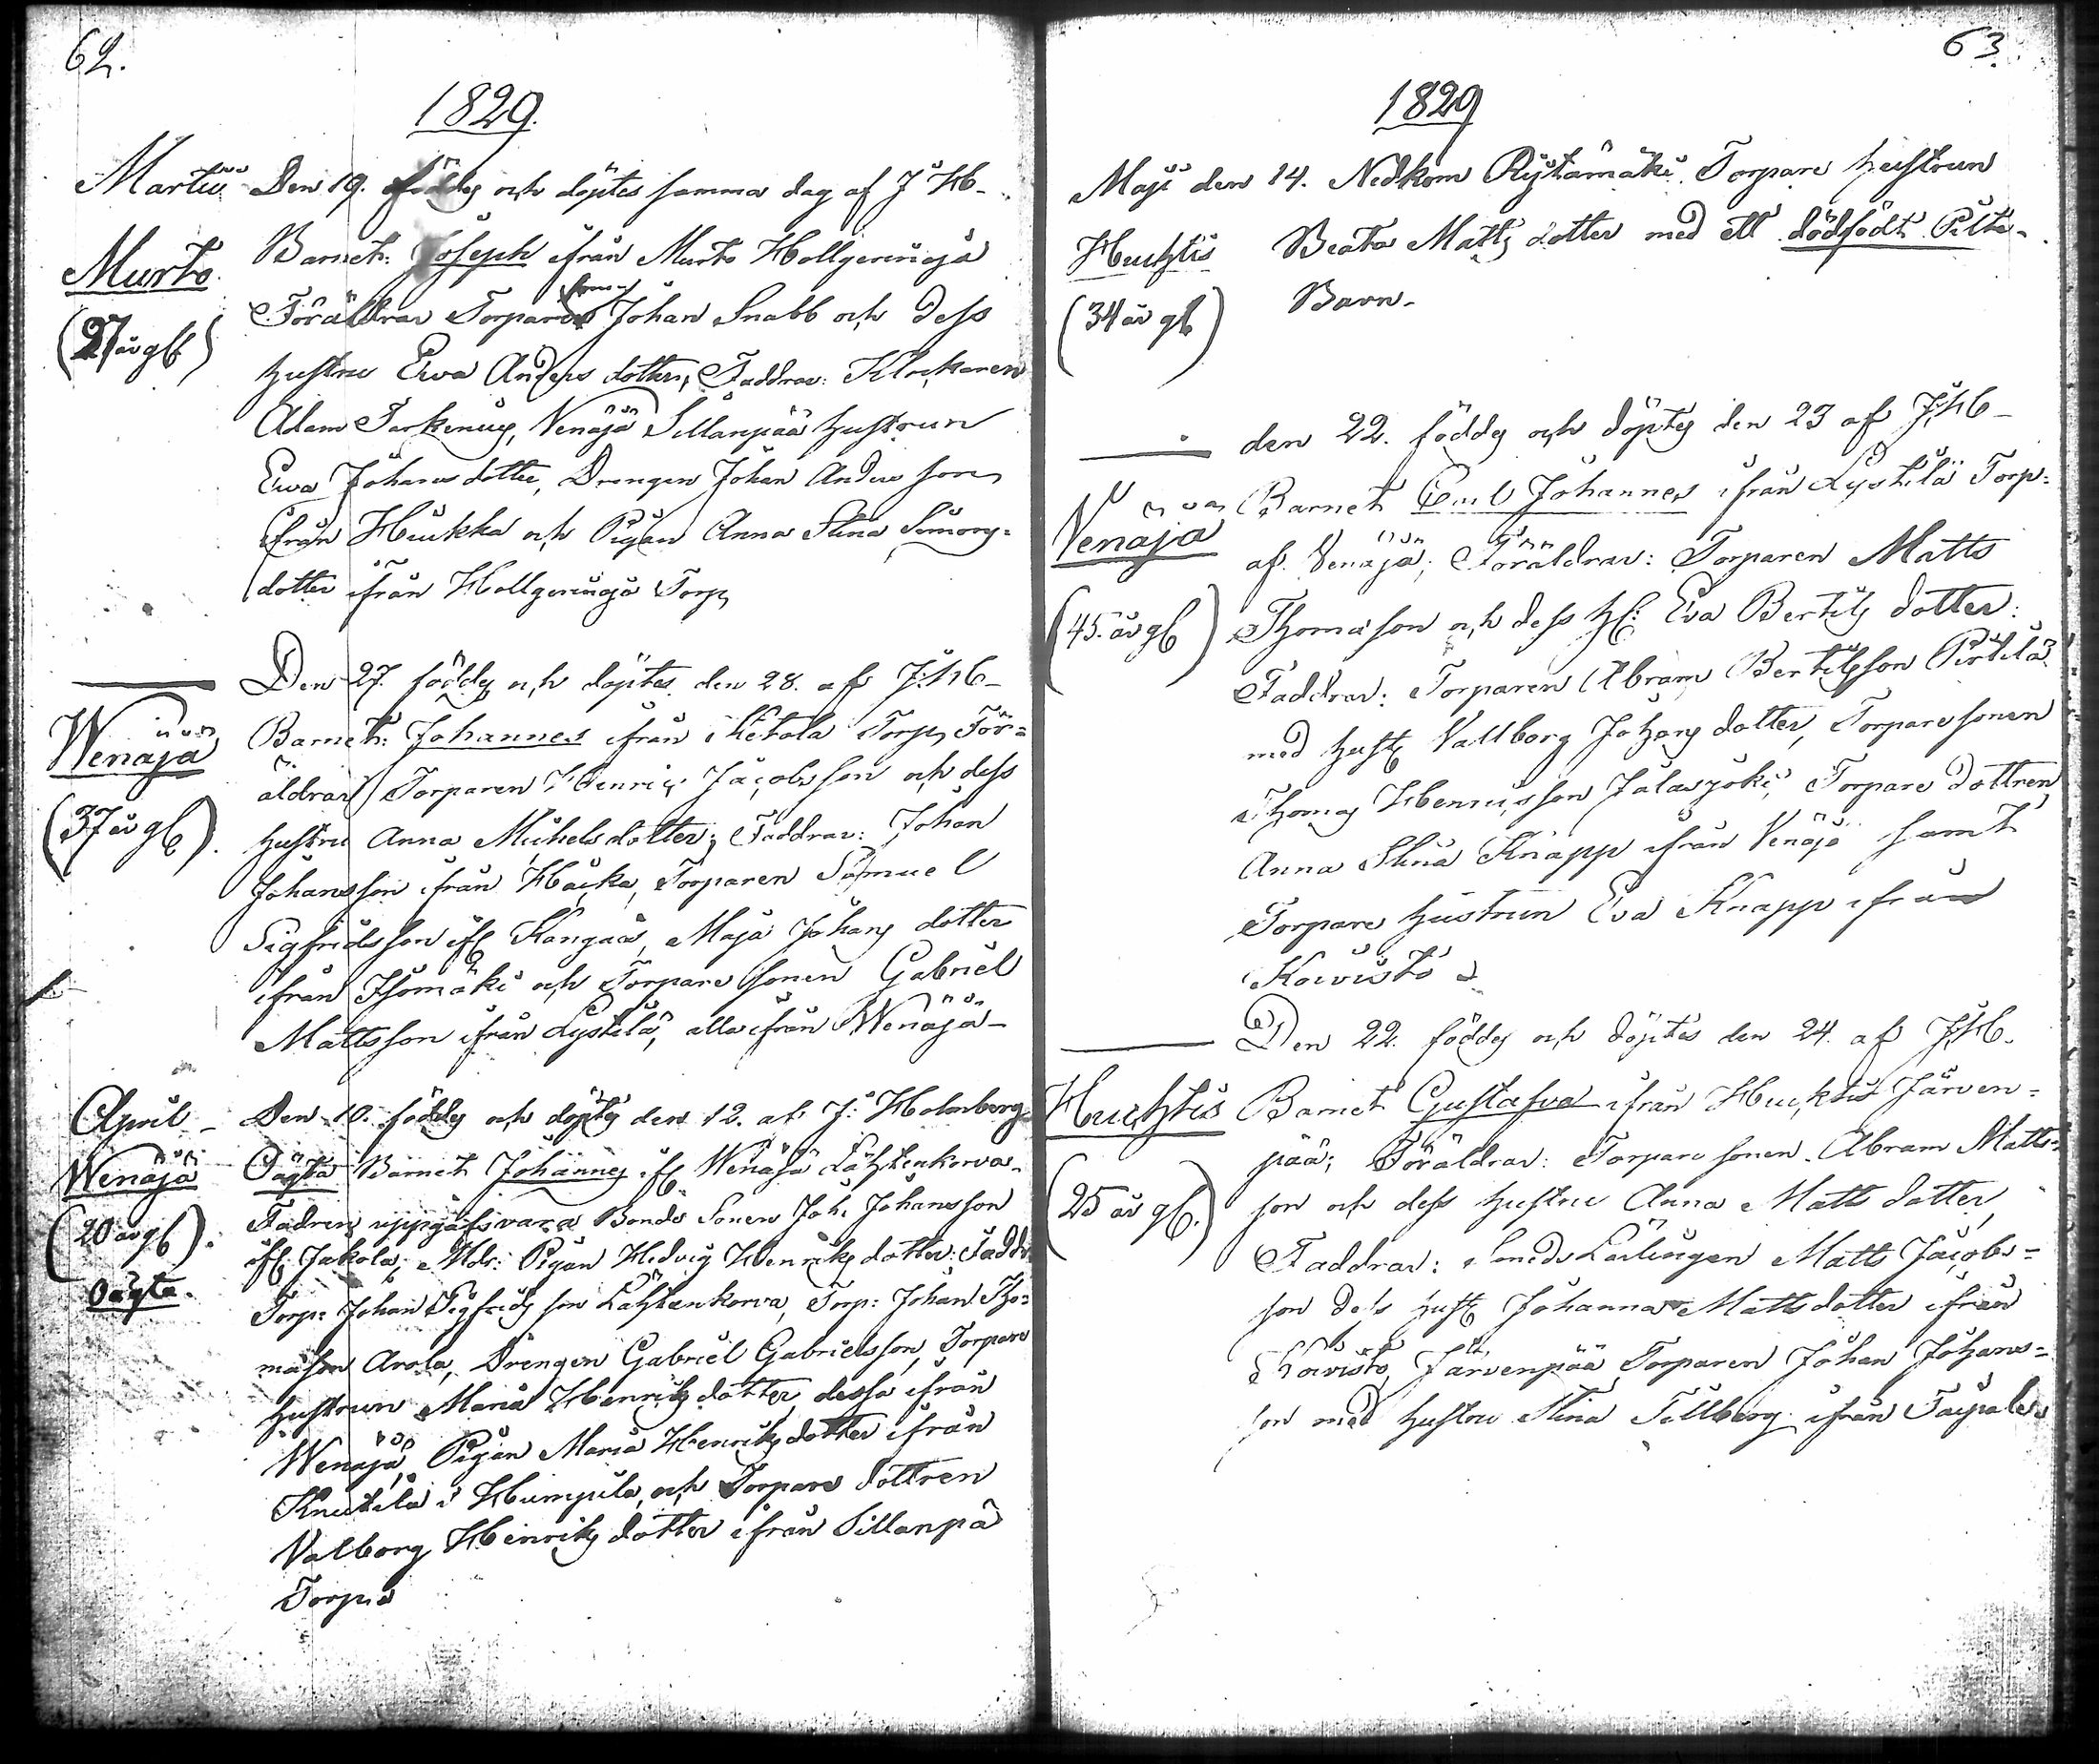 62.
1829.
Martii Den 19. föddes och döptes samma dag af J Hb-
Murto Barnet: Joseph ifrån Murto Hollgerinoja
(27 år gl) Föräldrar Torpare sonen Johan Snabb och dess
hustru Ewa Anders dotter, Faddrar: Klockaren
Adam Farkenius, Venäjä Sillanpää hustrun
Ewa Johans dotter, Drengen Johan Anders son
ifrån Huikka och Pigan Anna Stina Simons=
dotter ifrån Hollgerinoja Torp
Den 27. föddes och döptes den 28. af J. Hb-
Wenäjä Barnet: Johannes ifrån Ketola Torp, För=
äldrar Torparen Henric Jacobsson och dess
(37 år gl). hustru Anna Michelsdotter; Faddrar: Johan
Johansson ifrån Hacka, Torparen Samuel
Sigfridsson ifr Kangas, Maja Johans dotter
ifrån Isomäki och Torpare sonen Gabriel
Mattsson ifrån Lystilä, alla ifrån Wenäjä-
April- Den 10. föddes och döptes den 12. af J: Holmberg
Wenäjä Oägta Barnet Johannes ifr Wenäjä Lähtenkorva.
(20 år gl). Fadren uppgifs vara Bonde Sonen Joh: Johansson
ifr. Jakola; Mdr: Pigan Hedvig Henriks dotter: Faddr
Oägta. Torp: Johan Sigfrids son Lähtenkorva, Torp: Johan Tho=
mason Arola, Drengen Gabriel Gabrielsson, Torpare
hustrun Maria Henriks dotter, dessa ifrån
Wenäjä, Pigan Maria Henriks dotter ifrån
Knuutila i Humpila, och Torpare dottren
Valborg Henriks dotter ifrån Sillanpä
Torp.
63.
1829
Maji den 14. Nedkom Rijtämäki Torpare hustrun
Huchtis Beata Matts dotter med ett dödfödt Pilte-
(34 år gl) Barn-
den 22. föddes och döptes den 23 af J. Hb-
Venäjä Barnet Emil Johannes ifrån Lystilä Torp:
af Venäjä; Föräldrar: Torparen Matts
(45. år gl) Thomason och dess H: Eva Bertils dotter:
Faddrar: Torparen Abram Bertilsson Pirtilä
med hust Vallborg Johans dotter, Torpare sonen
Thomas Henricsson Jalasjoki, Torpare dottren
Anna Stina Knapp ifrån Venäjä samt
Torpare hustrun Eva Knapp ifrån
Koivisto
Den 22. föddes och döptes den 24. af J. Hb.
Huchtis Barnet Gustafva ifrån Huchtis Järven=
pää; Föräldrar: Torpare sonen Abram Matts=
(25 år gl.) son och dess hustru Anna Matts dotter,
Faddrar: Smeds Lärlingen Matts Jacobs=
son dess hust Johanna Matts dotter ifrån
Koivisto, Järvenpää, Torparen Johan Johans=
son med hustru Stina Tillberg ifrån Taipale.